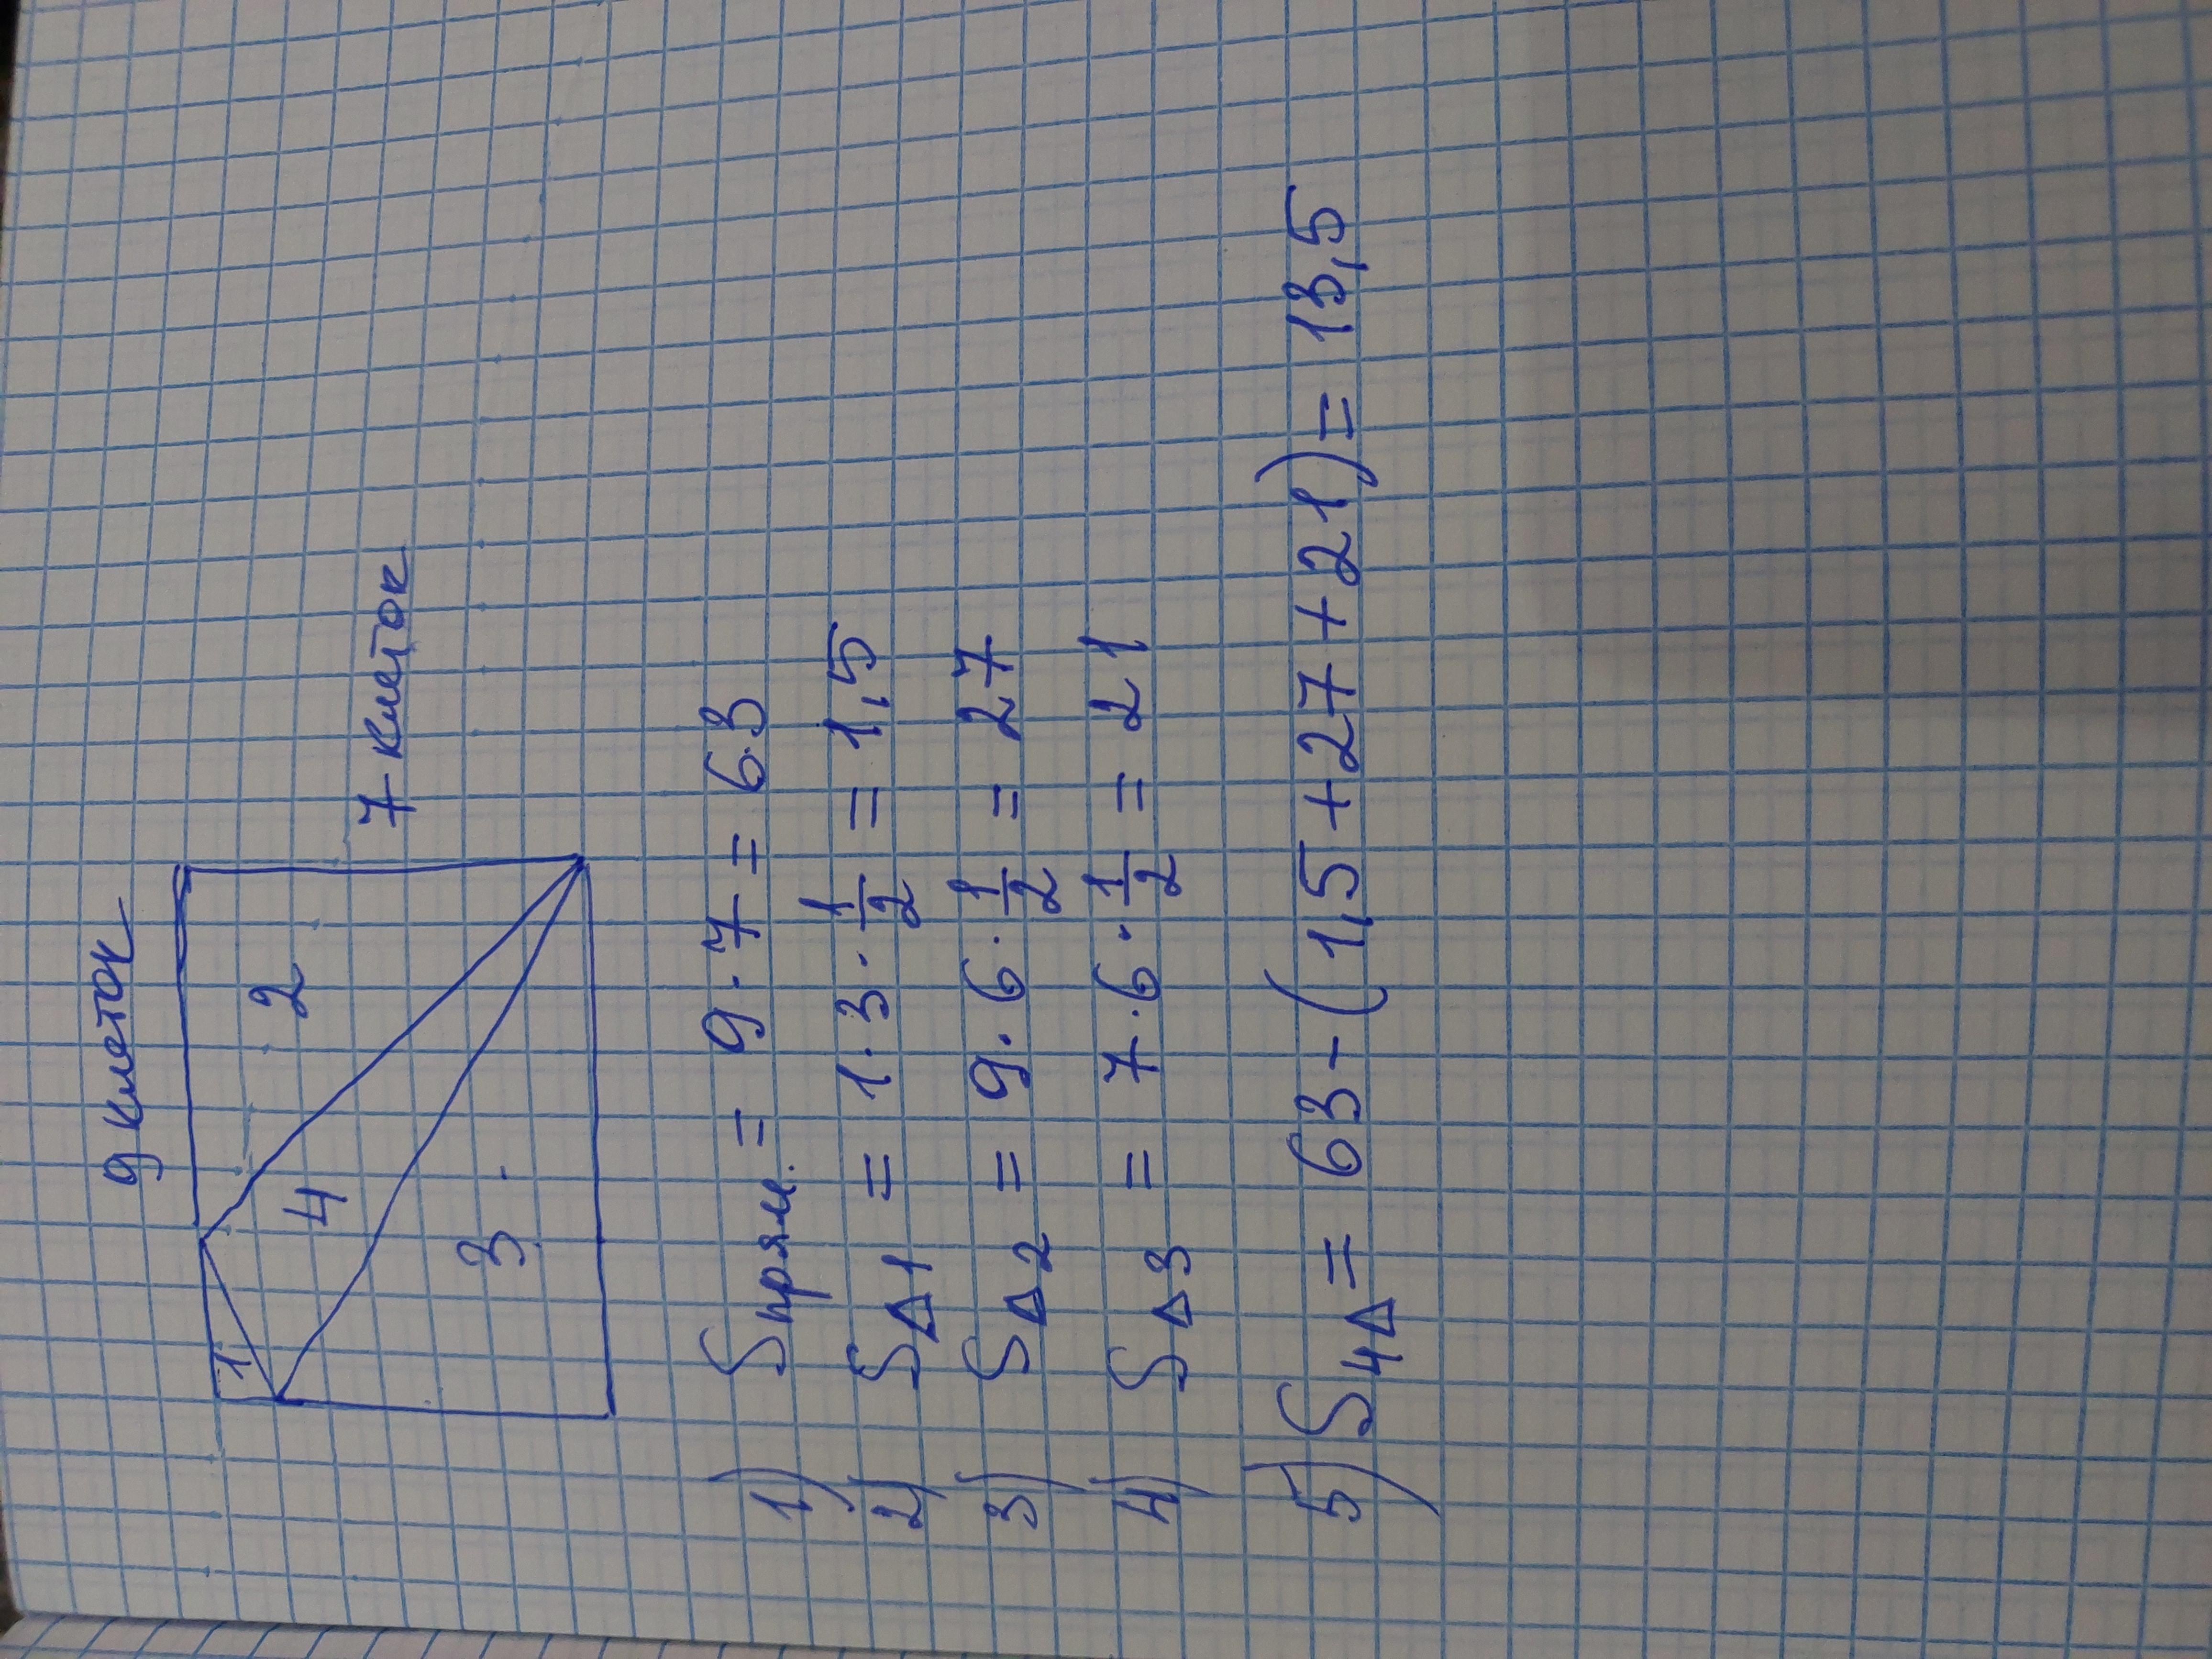 9 клеток
1
2
7 клеток
4
3
1) Sпрям. = 9·7 = 63
2) S△1 = 1·3·1/2 = 1,5
3) S△2 = 9·6·1/2 = 27
4) S△3 = 7·6·1/2 = 21
5) S4△ = 63-(1,5+27+21)= 13,5